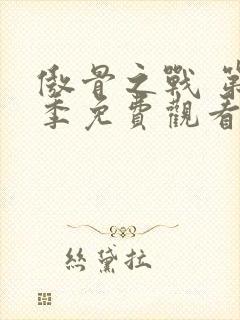 傲骨之戰 第
季免費觀看
絲黛拉